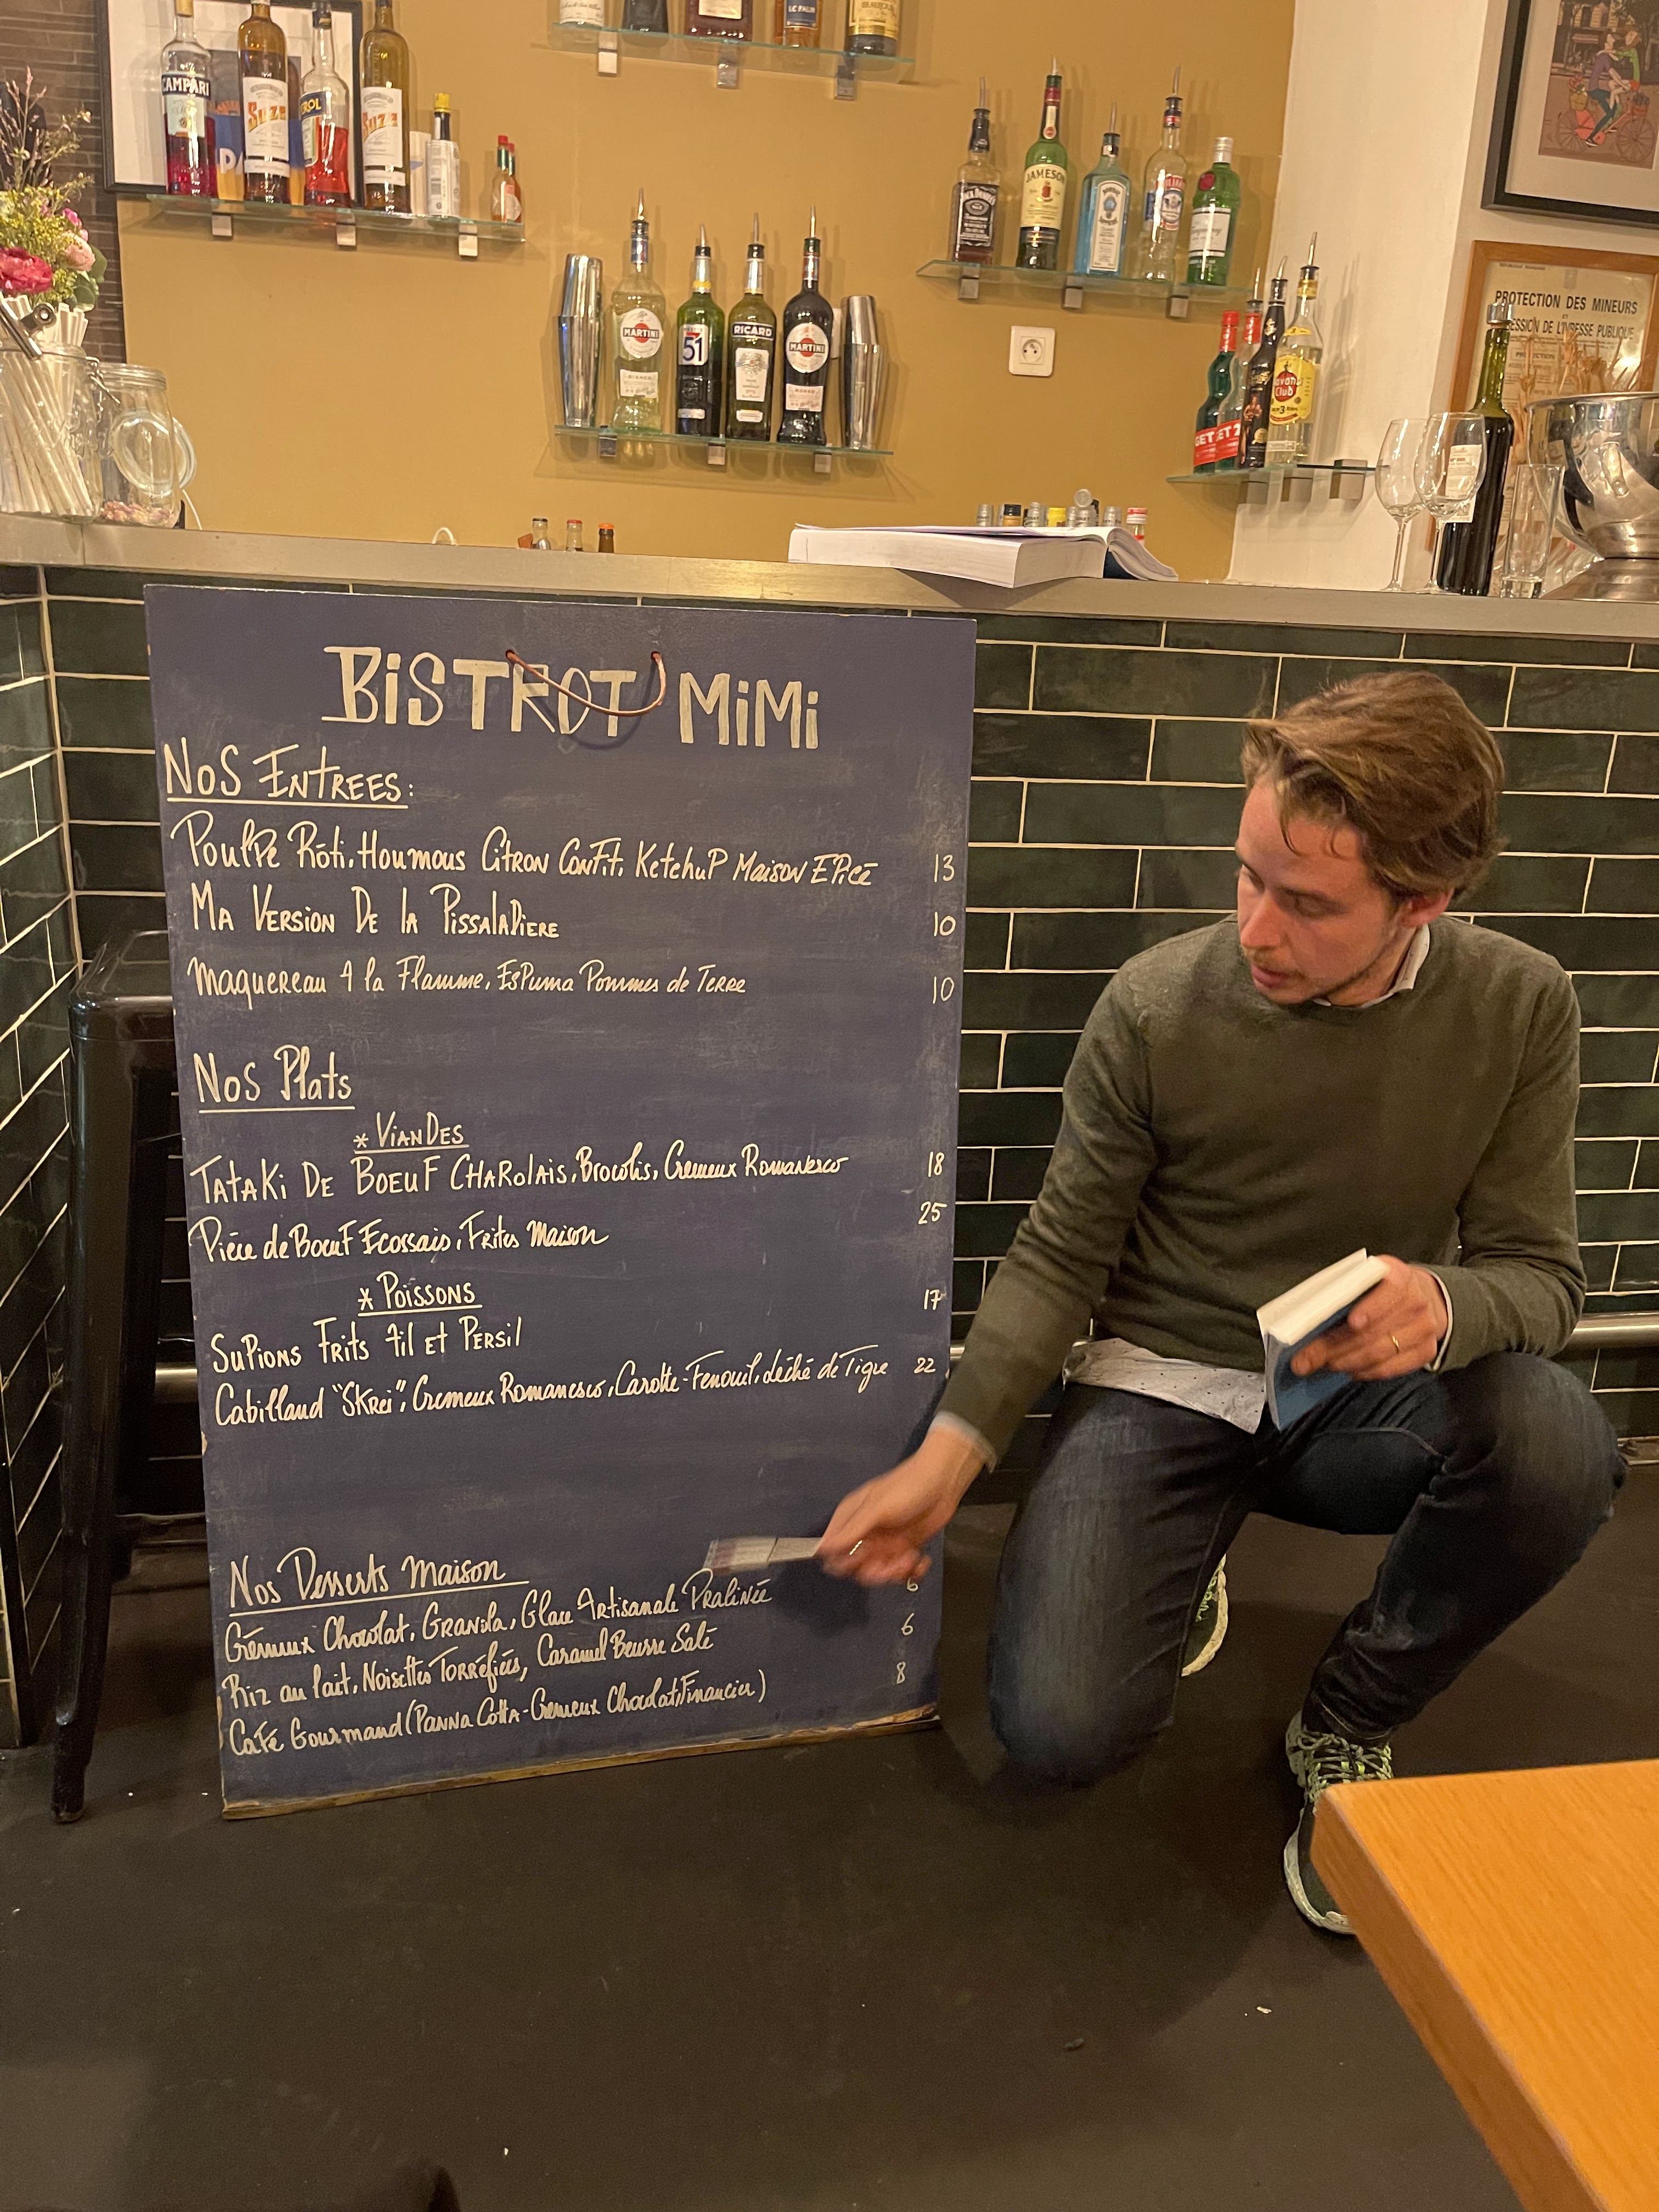 CAMPARI
SUZE
SUZE
MARTINI
BIANCO
51
RICARD
MARTINI
JACK DANIEL'S
JAMESON
Havana
Club
3
GET
GET 27
PROTECTION DES MINEURS
ET
RÉPRESSION DE L'IVRESSE PUBLIQUE
BiSTROT MiMi
NoS ENTREES:
Poulpe Rôti, Houmous Citron Confit, Ketchup Maison Epicé 13
Ma Version De la Pissaladiere 10
Maquereau A la Flamme, Espuma Pommes de Terre 10
Nos Plats
* Viandes
Tataki De Boeuf Charolais, Brocolis, Cremeux Romanesco 18
Pièce de Boeuf Ecossais, Frites Maison 25
* Poissons
Supions Frits Ail et Persil 17
Cabillaud "Skrei", Cremeux Romanesco, Carotte-Fenouil, Léché de Tigre 22
Nos Desserts Maison
Crémeux Chocolat, Granola, Glace Artisanale Pralinée 6
Riz au lait, Noisettes Torréfiées, Caramel Beurre Salé 6
Café Gourmand (Panna Cotta-Cremeux Chocolat, Financier) 8